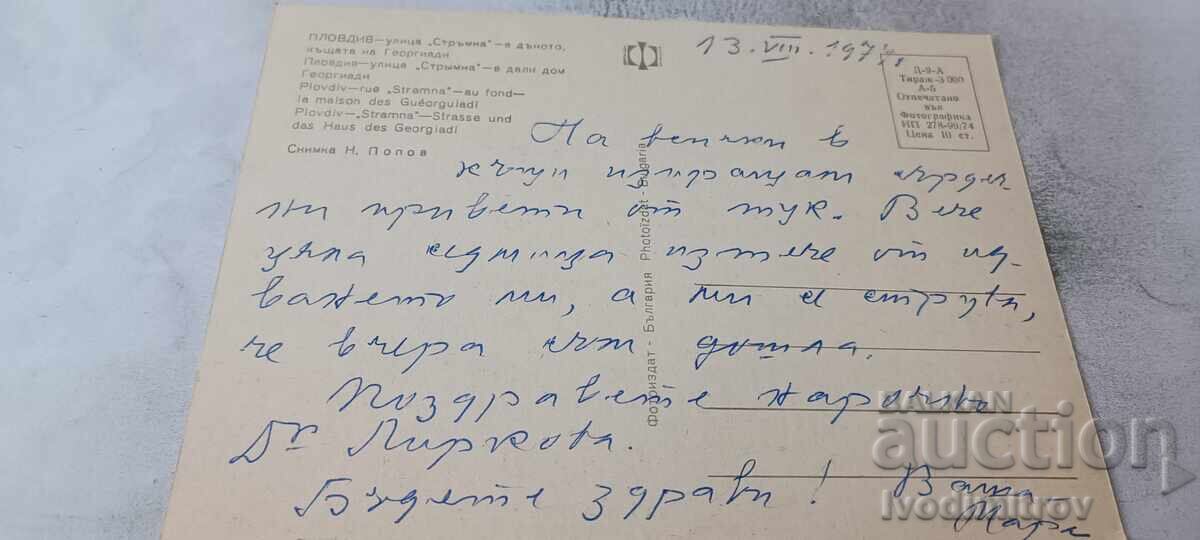 ПЛОВДИВ—улица „Стръмна"—в дъното,
къщата на Георгиади
Пловдив—улица „Стрымна"—в дали дом
Георгиади
Plovdiv—rue „Stramna"—au fond—
la maison des Guéorguiadi
Plovdiv—„Stramna"—Strasse und
das Haus des Georgiadi
Снимка Н. Попов
13.VIII.197
Д-9-А
Тираж-3 000
А-5
Отпечатано
във
Фотографика
ИП 278-99/74
Цена 10 ст.
Фотоиздат - България Photoizdat - Bulgaria
На всички в
изпращам сърдеч-
ни привети от тук. Вече
цяла седмица изтече от ид-
ването ми, а ми се струва,
че вчера съм дошла.
Поздравете
Dr Пиркова.
Бъдете здрави! Ваша
Мара
BALKAN
auction
Ivodimitrov